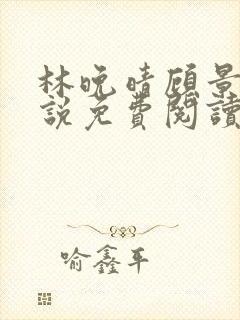 林晚晴顾景
說免費閱讀
喻鑫平